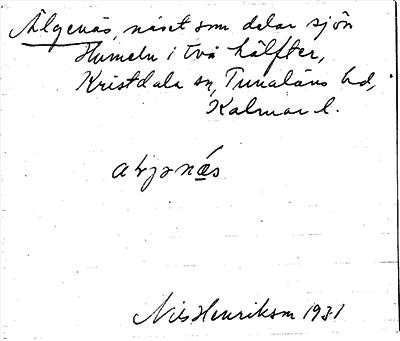 Älgenäs, näset som delar sjön
Humeln i två hälfter,
Kristdala sn, Tunaläns hd,
Kalmar l.
Nils Henriksson 1931